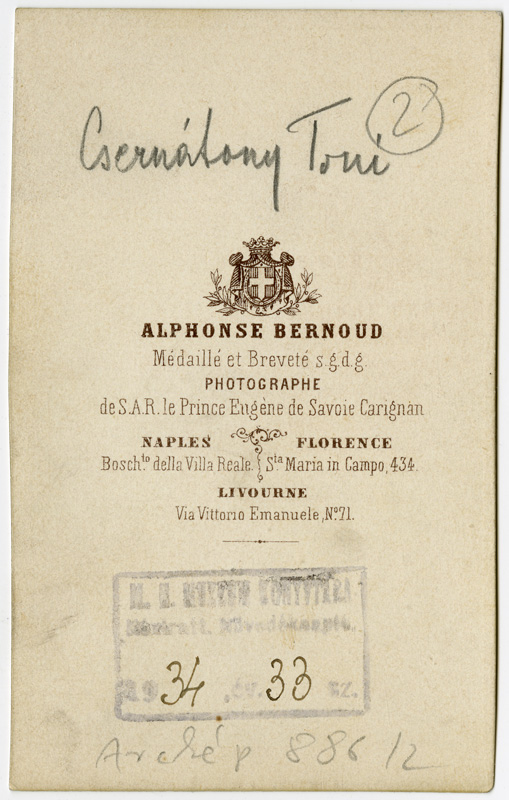 2
Csernátony Toni
ALPHONSE BERNOUD
Médaillé et Breveté s.g.d.g.
PHOTOGRAPHE
de S.A.R. le Prince Eugène de Savoie Carignan
NAPLES FLORENCE
Bosch.to della Villa Reale. Sta Maria in Campo, 434.
LIVOURNE
Via Vittorio Emanuele, No 71.
M. N. MUZEUM KÖNYVTÁRA
1934 év. 33 sz.
Arckép 886/2